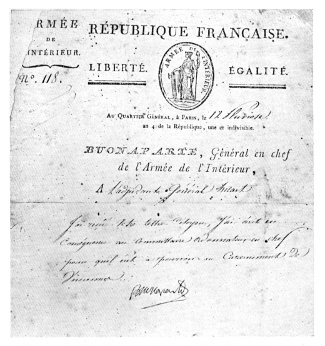 ARMÉE
DE
INTÉRIEUR.
N.º 118.
RÉPUBLIQUE FRANÇAISE.
LIBERTÉ.
ÉGALITÉ.
ARMÉE DE L'INTÉRIEUR
AU QUARTIER GÉNÉRAL, à PARIS, le 12
an 4 de la République, une et indivisible.
BUONAPARTE, Général en chef
de l'Armée de l'Intérieur,
A L'adjudant Général
J'ai reçu ta lettre Citoyen, J'ai écrit en
au Commissaire ordonnateur en chef
pour qu'il ait à pourvoir au Casernement de
Vincennes.
Buonaparte